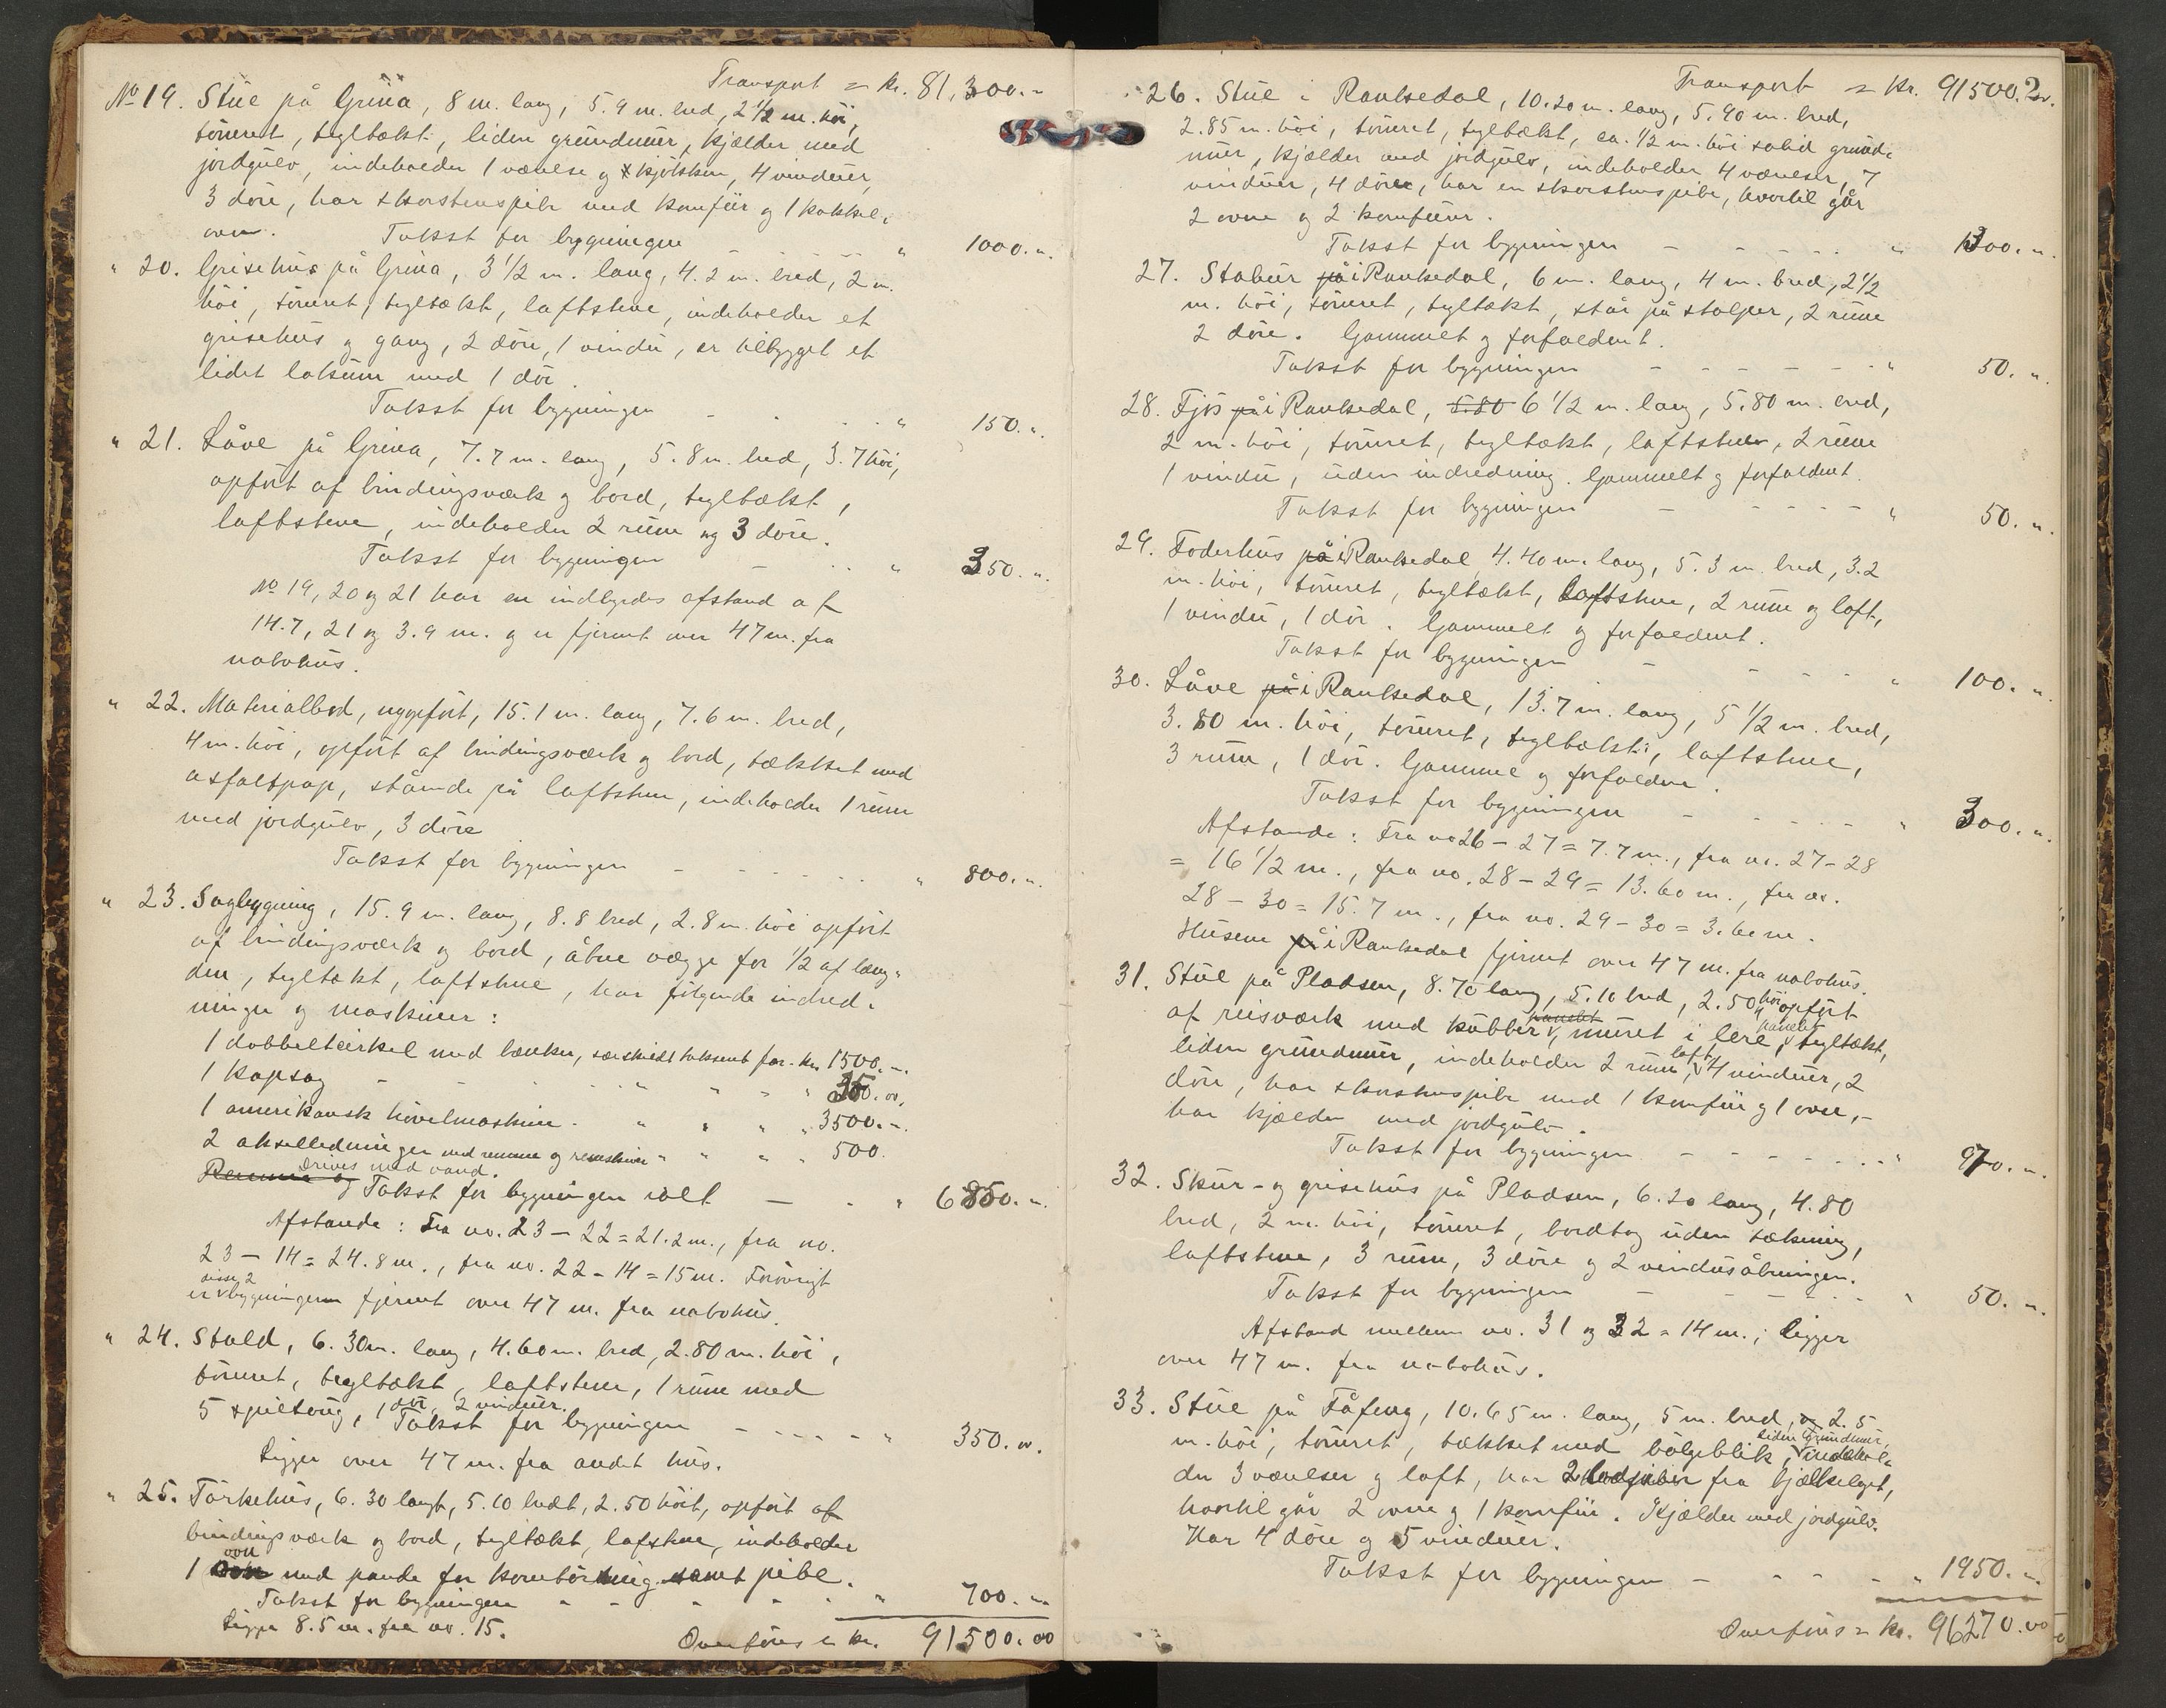 Transport = kr. 81,300.-
No 19. Stue på Grina, 8 m. lang, 5.9 m. bred, 2 1/2 m. höi,
tömret, tegltækt, liden grundmur, kjælder med
jordgulv, indeholder 1 værelse og kjökken, 4 vinduer,
3 döre, har skorstenspibe med komfur og 1 kakkel-
ovn. Takst for bygningen - - " 1000.-
" 20. Grisehus på Grina, 3 1/2 m. lang, 4.2 m. bred, 2 m.
höi, tömret, tegltækt, laftstene, indeholder et
grisehus og gang, 2 döre, 1 vindu, er tilbygget et
lidet lokum med 1 dör.
Takst for bygningen - - - " 150.-
" 21. Låve på Grina, 7.7 m. lang, 5.8 m. bred, 3.7 höi,
opfört af bindingsværk og bord, tegltækt,
laftstene, indeholder 2 rum og 3 döre.
Takst for bygningen - - - " 350.-
No 19, 20 og 21 har en indbyrdes afstand af
14.7, 21 og 3.9 m. og er fjernet over 47 m. fra
nabohus.
" 22. Materialbod, nyopfört, 15.1 m. lang, 7.6 m. bred,
4 m. höi, opfört af bindingsværk og bord, tækket med
asfaltpap, stående på laftstene, indeholder 1 rum
med jordgulv, 3 döre
Takst for bygningen - - - - - " 800.-
" 23. Sagbygning, 15.9 m. lang, 8.8 bred, 2.8 m. höi opfört
af bindingsværk og bord, åbne vægge for 1/2 af læng-
den, tegltækt, laftstene, har fölgende indred-
ninger og maskiner:
1 dobbeltcirkel med bænker, særskildt takseret for. kr. 1500.-
1 kapsag - - - " " - " 350.00.
1 amerikansk hövelmaskine - " " " " 3500.-
2 akselledninger med remme og remskiver " " " " 500.
drives med vand.
Remme og Takst for bygningen ialt - - " 6850.-
Afstande: Fra no. 23 - 22 = 21.2 m., fra no.
23 - 14 = 24.8 m., fra no. 22 - 14 = 15 m. Forövrigt
disse 2
er bygningerne fjernet over 47 m. fra nabohus.
" 24. Stald, 6.30 m. lang, 4.60 m. bred, 2.80 m. höi,
tömret, tegltækt, laftstene, 1 rum med
5 spiltoug, 1 dör, 2 vinduer.
Takst for bygningen - - - - - " 350.00.
Ligger over 47 m. fra andet hus.
" 25. Törkehus, 6.30 langt, 5.10 bredt, 2.50 höit, opfört af
bindingsværk og bord, tegltækt, laftstene, indeholder
ovn
1 med pande for korntörking samt pibe.
Takst for bygningen - - - - - " 700.-
Ligger 8.5 m. fra no. 15.
Overföres = kr. 91500.00
Transport = kr. 91500.-
26. Stue i Ranksedal, 10.20 m. lang, 5.90 m. bred,
2.85 m. höi, tömret, tegltækt, ca. 1/2 m. höi solid grund-
mur, kjælder med jordgulv, indeholder 4 værelser, 7
vinduer, 4 döre, har en skorstenspibe, hvortil går
2 ovne og 2 komfurer.
Takst for bygningen - - - - - " 1300.-
27. Stabur på i Ranksedal, 6 m. lang, 4 m. bred, 2 1/2
m. höi, tömret, tegltækt, står på stolper, 2 rum
2 döre. Gammelt og forfaldent.
Takst for bygningen - - - - - " 50.-
28. Fjös på i Ranksedal, 5.80 6 1/2 m. lang, 5.80 m. bred,
2 m. höi, tömret, tegltækt, laftstene, 2 rum
1 vindu, uden indredning. Gammelt og forfaldent.
Takst for bygningen - - - - - " 50.-
29. Foderhus på i Ranksedal 4.40 m. lang, 5.3 m. bred, 3.2
m. höi, tömret, tegltækt, laftstene, 2 rum og loft,
1 vindu, 1 dör. Gammelt og forfaldent.
Takst for bygningen - - - - - " 100.-
30. Låve på i Ranksedal, 13.7 m. lang, 5 1/2 m. bred,
3.80 m. höi, tömret, tegltækt, laftstene,
3 rum, 1 dör. Gammel og forfalden.
Takst for bygningen - - - - - " 300.-
Afstande: Fra no 26 - 27 = 7.7 m., fra no. 27 - 28
= 16 1/2 m., fra no. 28 - 29 = 13.60 m., fra no.
28 - 30 = 15.7 m., fra no. 29 - 30 = 3.60 m.
Husene på i Ranksedal fjernet over 47 m. fra nabohus.
31. Stue på Pladsen, 8.70 lang, 5.10 bred, 2.50 höi opfört
panelet panelet
af reisværk med kubber, muret i lere, tegltækt,
loft,
liden grundmur, indeholder 2 rum, 4 vinduer, 2
döre, har skorstenspibe med 1 komfur og 1 ovn,-
har kjælder med jordgulv.
Takst for bygningen - - - - - " 970.-
32. Skur- og grisehus på Pladsen, 6.20 lang, 4.80
bred, 2 m. höi, tömret, bordtag uden tækning,
laftstene, 3 rum, 3 döre og 2 vindusåbninger.
Takst for bygningen - - - - - " 50.-
Afstand mellem no. 31 og 32 = 14 m.; ligger
over 47 m. fra nabohus.
33. Stue på Fåfeng, 10.65 m. lang, 5 m. bred, og 2.5
liden Grundmur,
m. höi, tömret, tækket med bölgeblik, indehol-
der 3 værelser og loft, har 2 fra bjælkelaget,
hvortil går 2 ovne og 1 komfur. Kjælder med jordgulv.
Har 4 döre og 5 vinduer.
Takst for bygningen - - - - - " 1950.-
Overföres = kr. 96270.00